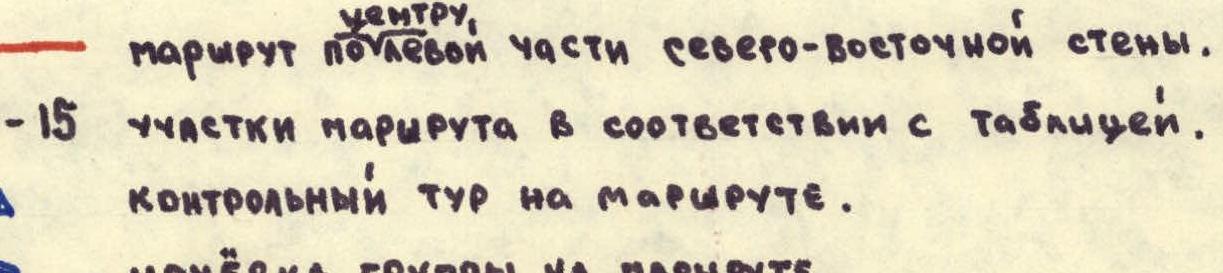 маршрут по центру, левой части северо-восточной стены.
- 15 участки маршрута в соответствии с таблицей.
контрольный тур на маршруте.
ночёвка группы на маршруте